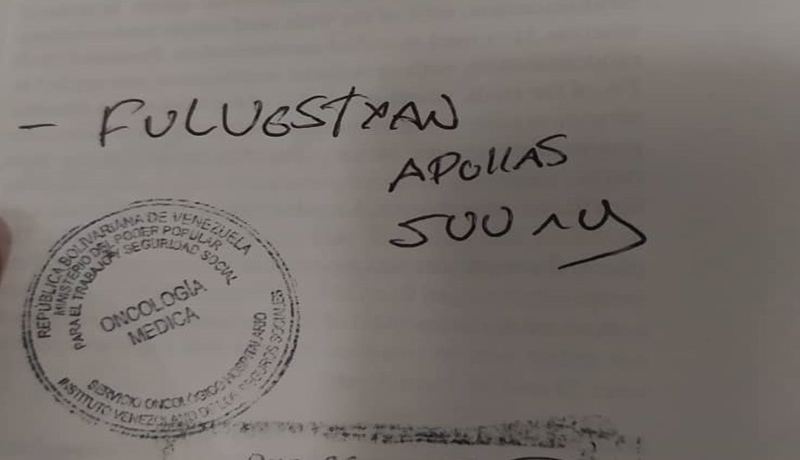 - FULVESTRAN
AMPOLLAS
500 mg
REPÚBLICA BOLIVARIANA DE VENEZUELA
MINISTERIO DEL PODER POPULAR
PARA EL TRABAJO Y SEGURIDAD SOCIAL
ONCOLOGÍA
MEDICA
SERVICIO ONCOLÓGICO HOSPITALARIO
INSTITUTO VENEZOLANO DE LOS SEGUROS SOCIALES